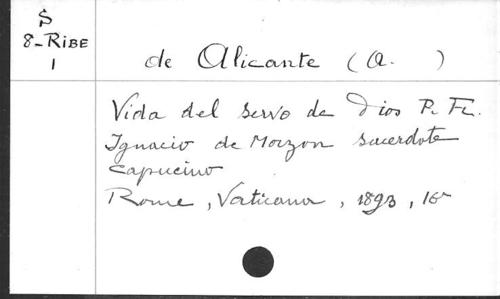 S
8-RIBE
1
de Alicante (A. )
Vida del servo de Dios P. Fr.
Ignacio de Monzon sacerdote
capucino
Rome, Vaticana, 1893, 16°